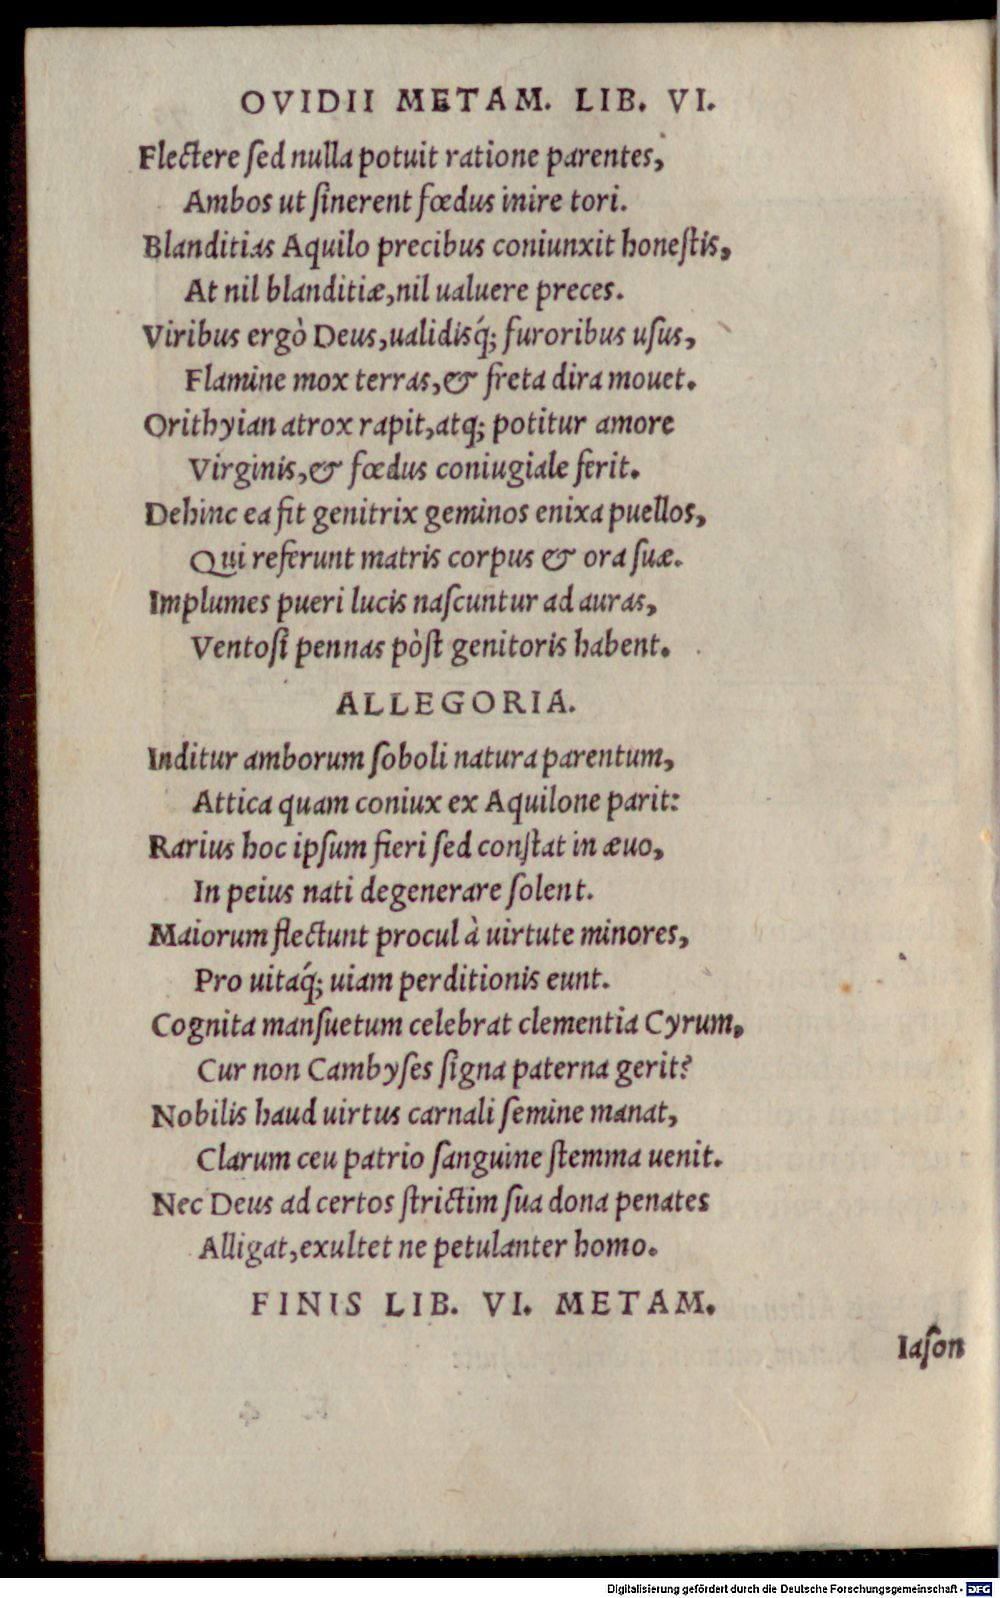 OVIDII METAM. LIB. VI.
Flectere ſed nulla potuit ratione parentes,
Ambos ut ſinerent fœdus inire tori.
Blanditias Aquilo precibus coniunxit honeſtis,
At nil blanditiæ, nil ualuere preces.
Viribus ergò Deus, ualidisq́; furoribus uſus,
Flamine mox terras, & freta dira mouet.
Orithyian atrox rapit, atq; potitur amore
Virginis, & fœdus coniugiale ferit.
Dehinc ea fit genitrix geminos enixa puellos,
Qui referunt matris corpus & ora ſuæ.
Implumes pueri lucis naſcuntur ad auras,
Ventoſi pennas pòſt genitoris habent.
ALLEGORIA.
Inditur amborum ſoboli natura parentum,
Attica quam coniux ex Aquilone parit:
Rarius hoc ipſum fieri ſed conſtat in æuo,
In peius nati degenerare ſolent.
Maiorum flectunt procul à uirtute minores,
Pro uitaq́; uiam perditionis eunt.
Cognita manſuetum celebrat clementia Cyrum,
Cur non Cambyſes ſigna paterna gerit?
Nobilis haud uirtus carnali ſemine manat,
Clarum ceu patrio ſanguine ſtemma uenit.
Nec Deus ad certos ſtrictim ſua dona penates
Alligat, exultet ne petulanter homo.
FINIS LIB. VI. METAM.
Iaſon
Digitalisierung gefördert durch die Deutsche Forschungsgemeinschaft - DFG